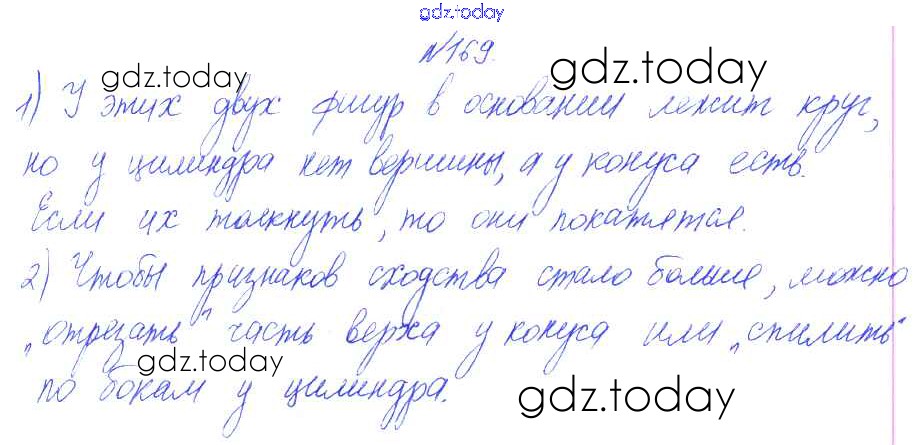 gdz.today
№169.
gdz.today gdz.today
1) У этих двух фигур в основании лежит круг,
но у цилиндра нет вершины, а у конуса есть.
Если их толкнуть, то они покатятся.
2) Чтобы признаков сходства стало больше, можно
„отрезать" часть верха у конуса или „спилить"
gdz.today gdz.today
по бокам у цилиндра.